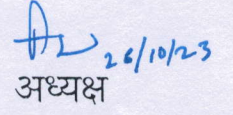 26/10/23
अध्यक्ष